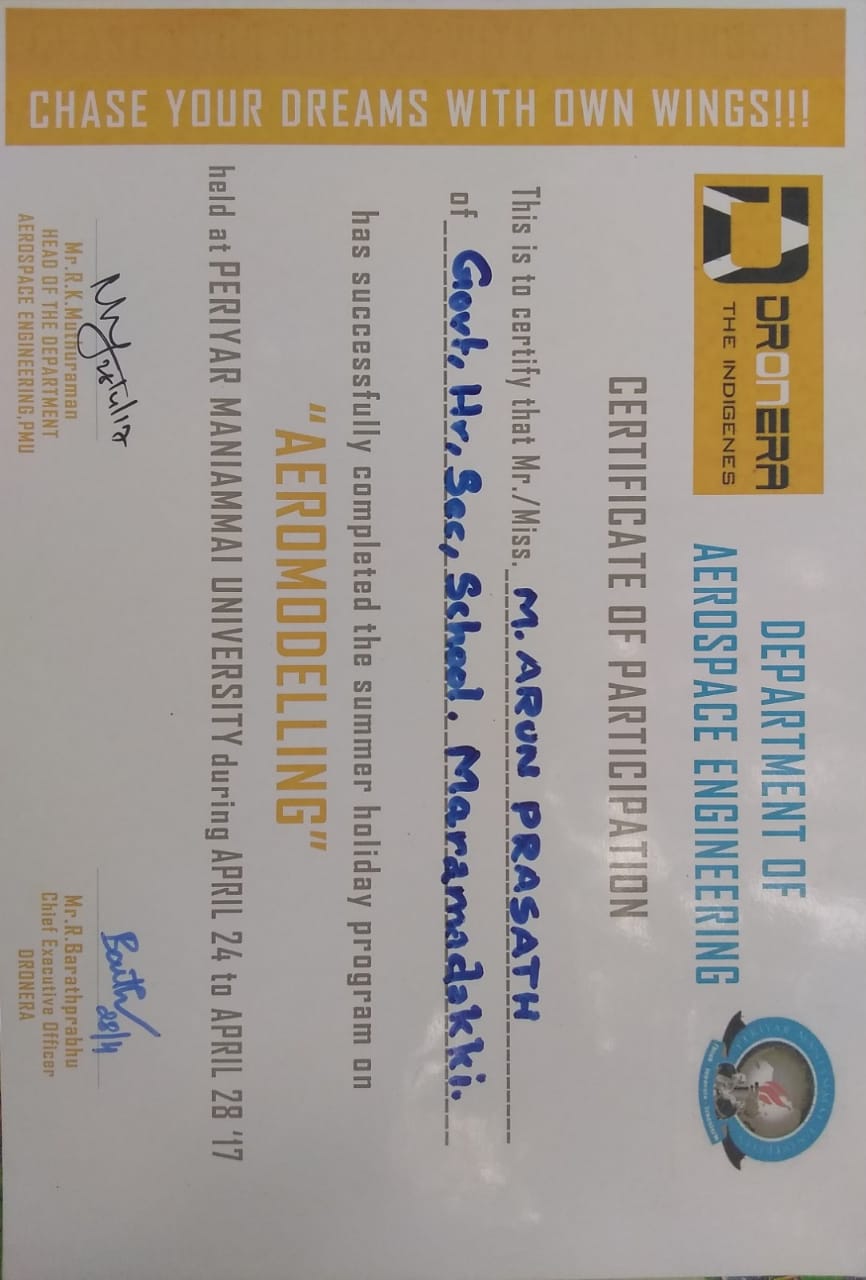 CHASE YOUR DREAMS WITH OWN WINGS!!!
DRONERA
THE INDIGENES
DEPARTMENT OF
AEROSPACE ENGINEERING
CERTIFICATE OF PARTICIPATION
This is to certify that Mr./Miss. M. ARUN PRASATH
of Govt, Hr, Sec, School. Maramadakki.
has successfully completed the summer holiday program on
“AEROMODELLING”
held at PERIYAR MANIAMMAI UNIVERSITY during APRIL 24 to APRIL 28 '17
28/4/17
28/4
Mr.R.K.Muthuraman
HEAD OF THE DEPARTMENT
AEROSPACE ENGINEERING,PMU
Mr.R.Barathprabhu
Chief Executive Officer
DRONERA